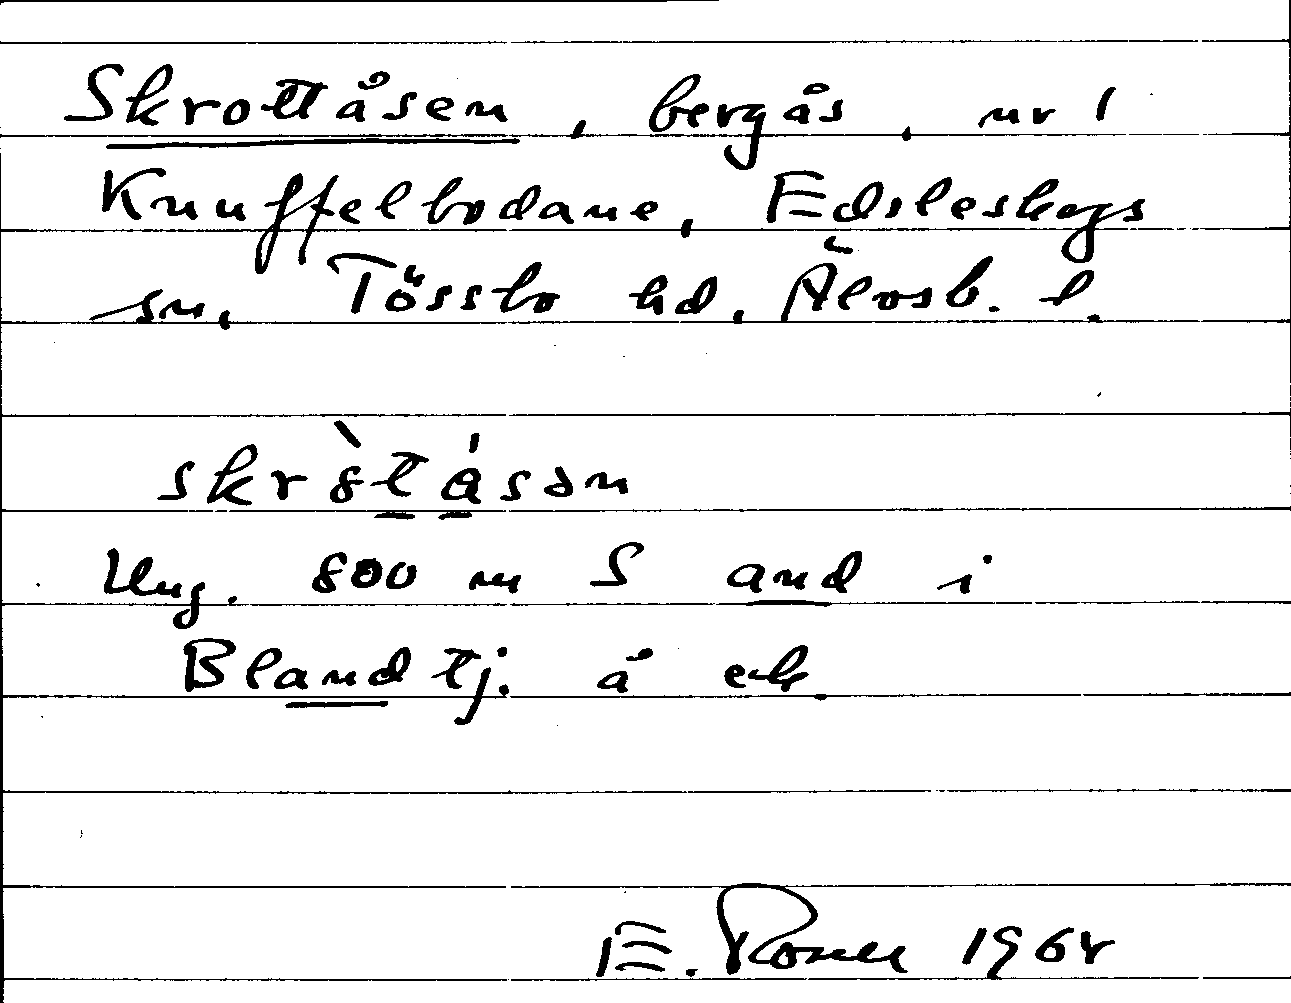 Skrottåsen, bergås, nr 1
Knuffelbodane, Edsleskogs
sn, Tössbo hd, Älvsb. l.
skr8̀tåsən
Ung. 800 m S and i
Blandtj. å ek.
E. 1964